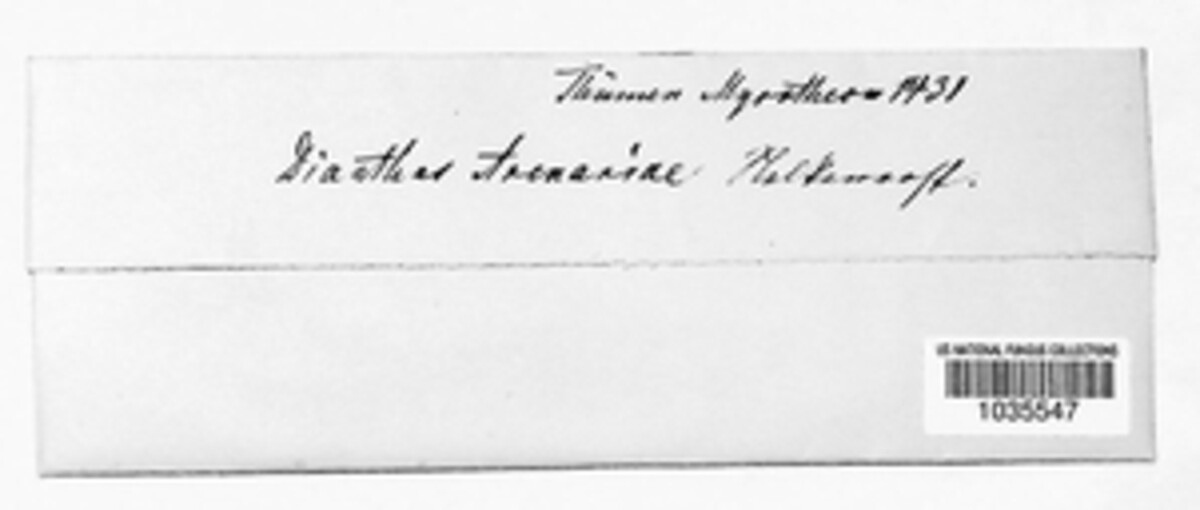 Thümen Mycotheca 1431
Dianthus Arenariae
US NATIONAL FUNGUS COLLECTIONS
1035547